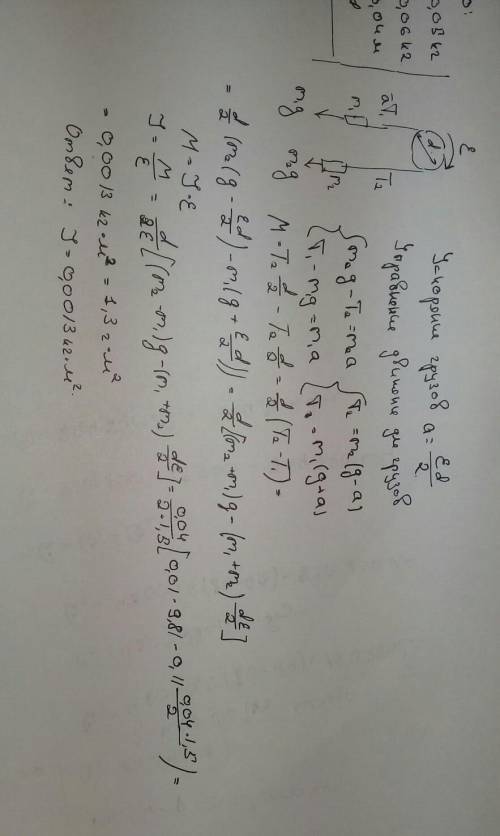 о:
0,05 кг
0,06 кг
0,04 м
Ускорение грузов a = εd/2
Уравнение движения для грузов
ε
d
āT₁
T₂
m₁
m₂
m₁g
m₂g
{ m₂g - T₂ = m₂a { T₂ = m₂(g-a)
{ T₁ - m₁g = m₁a { T₂ = m₁(g+a)
M = T₂ d/2 - T₂ d/2 = d/2 (T₂ - T₁) =
= d/2 (m₂(g - εd/2) - m₁(g + εd/2)) = d/2 [(m₂+m₁)g - (m₁+m₂) dε/2]
M = J·ε
J = M/ε = d/2ε [(m₂-m₁)g - (m₁+m₂) dε/2] = 0,04/2·1,5 [0,01·9,81 - 0,11 0,04·1,5/2) =
= 0,0013 кг·м² = 1,3 г·м²
Ответ: J = 0,0013 кг·м².